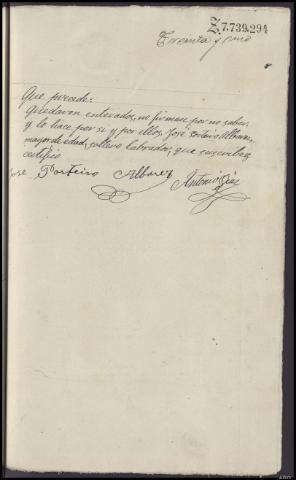 Z.7.739.294
Treinta y uno
Que precede:
Quedaron enterados, no firman por no saber,
y lo hace por si y por ellos, José Porteiro Alvarez,
mayor de edad, soltero labrador; que suscribe,
certifico
Jose Porteiro Albarez
Antonio Diaz